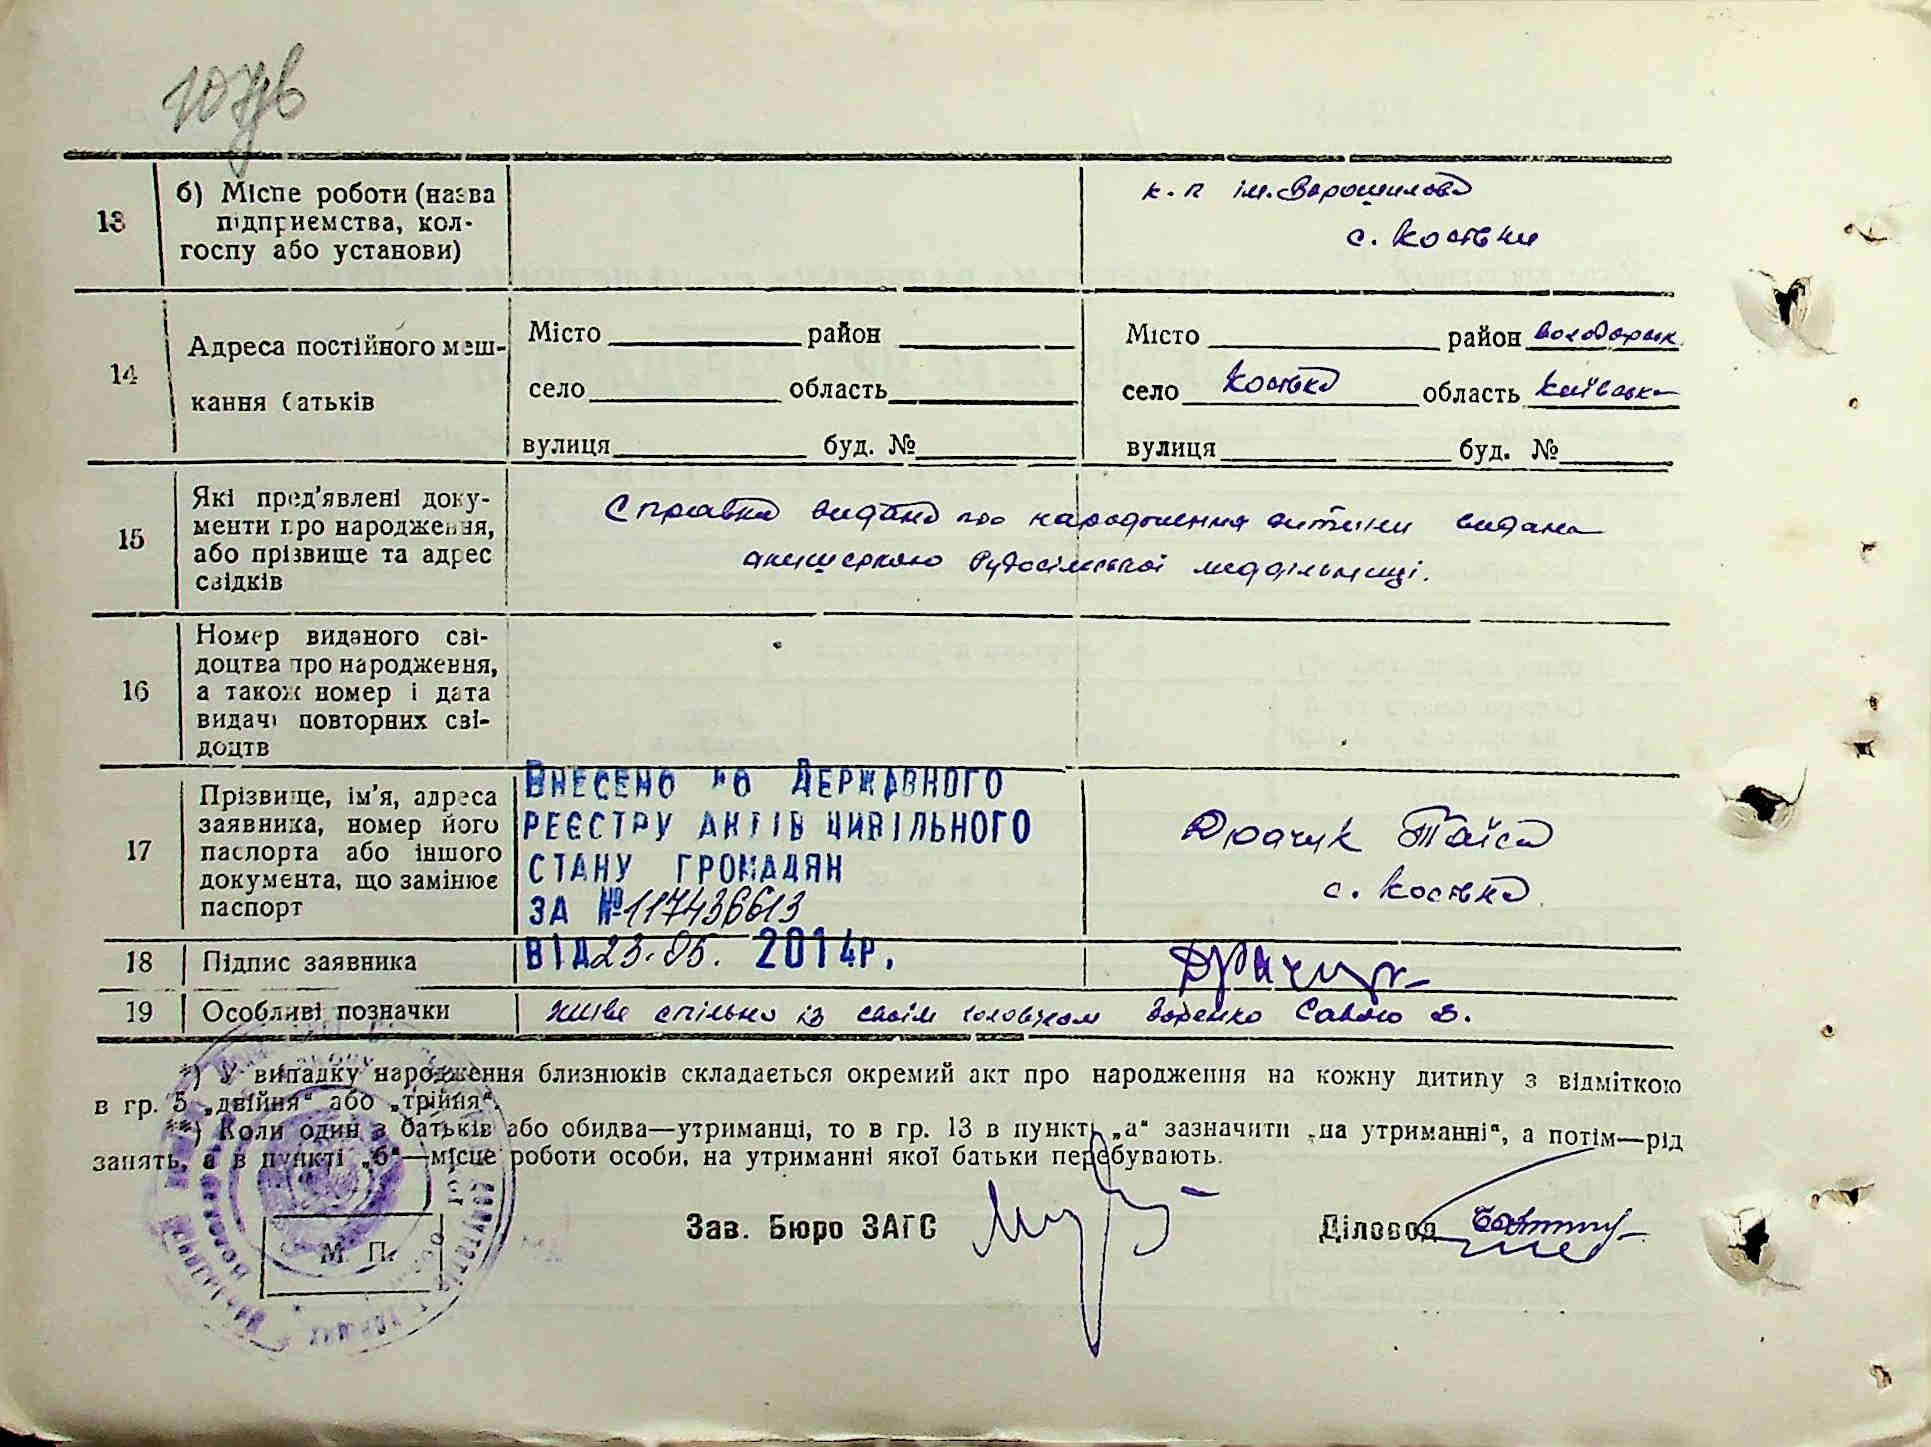 107зв
13
б) Місце роботи (назва
підприємства, кол-
госпу або установи)
к-п ім. Ворошилова
с. Костьки
14
Адреса постійного меш-
кання батьків
Місто район
село область
вулиця буд. №
Місто район Володарськ.
село Костьки область Київська
вулиця буд. №
15
Які пред'явлені доку-
менти про народження,
або прізвище та адрес
свідків
Справка видана про народження дитини видана
акушеркою Рудосільської меддільниці.
16
Номер виданого сві-
доцтва про народження,
а також номер і дата
видачі повторних сві-
доцтв
17
Прізвище, ім'я, адреса
заявника, номер його
паспорта або іншого
документа, що замінює
паспорт
Внесено до Державного
реєстру актів цивільного
стану громадян
за №117436613
від 23.05. 2014р.
Драчук Таїса
с. Костьки
18
Підпис заявника
Драчук
19
Особливі позначки
живе спільно із своїм чоловіком Савою В.
*) У випадку народження близнюків складається окремий акт про народження на кожну дитину з відміткою
в гр. 5 „двійня“ або „трійня“.
**) Коли один з батьків або обидва—утриманці, то в гр. 13 в пункті „а“ зазначити „на утриманні“, а потім—рід
занять, а в пункті „б“—місце роботи особи, на утриманні якої батьки перебувають.
М. П.
Зав. Бюро ЗАГС
Діловод